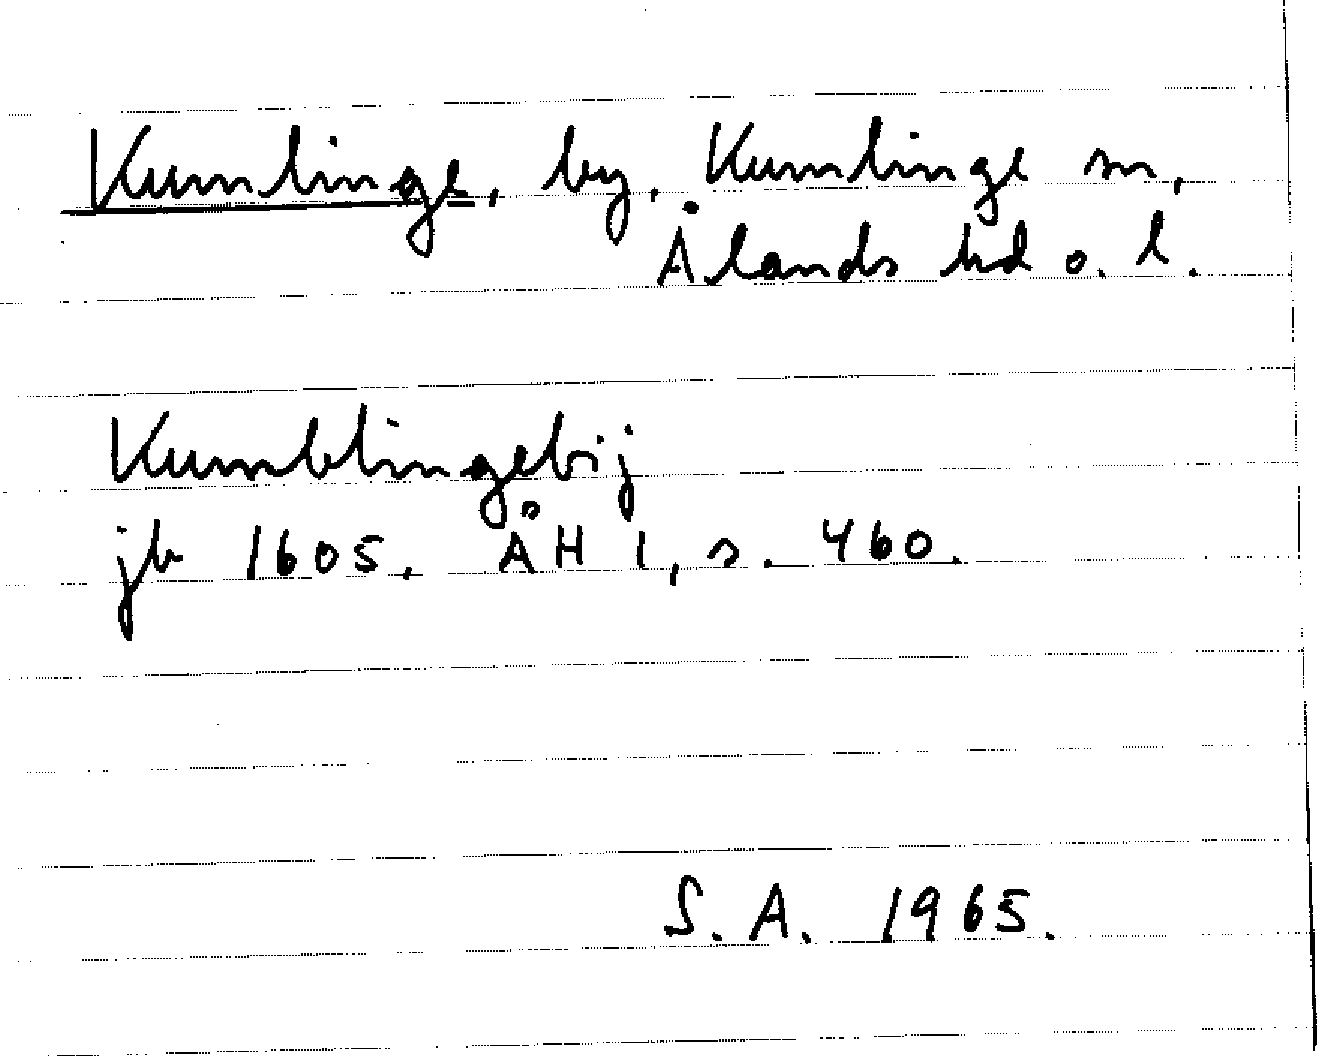 Kumlinge, by, Kumlinge sn,
Ålands hd o. l.
Kumblingebij
jb 1605. ÅH 1, s. 460.
S. A. 1965.